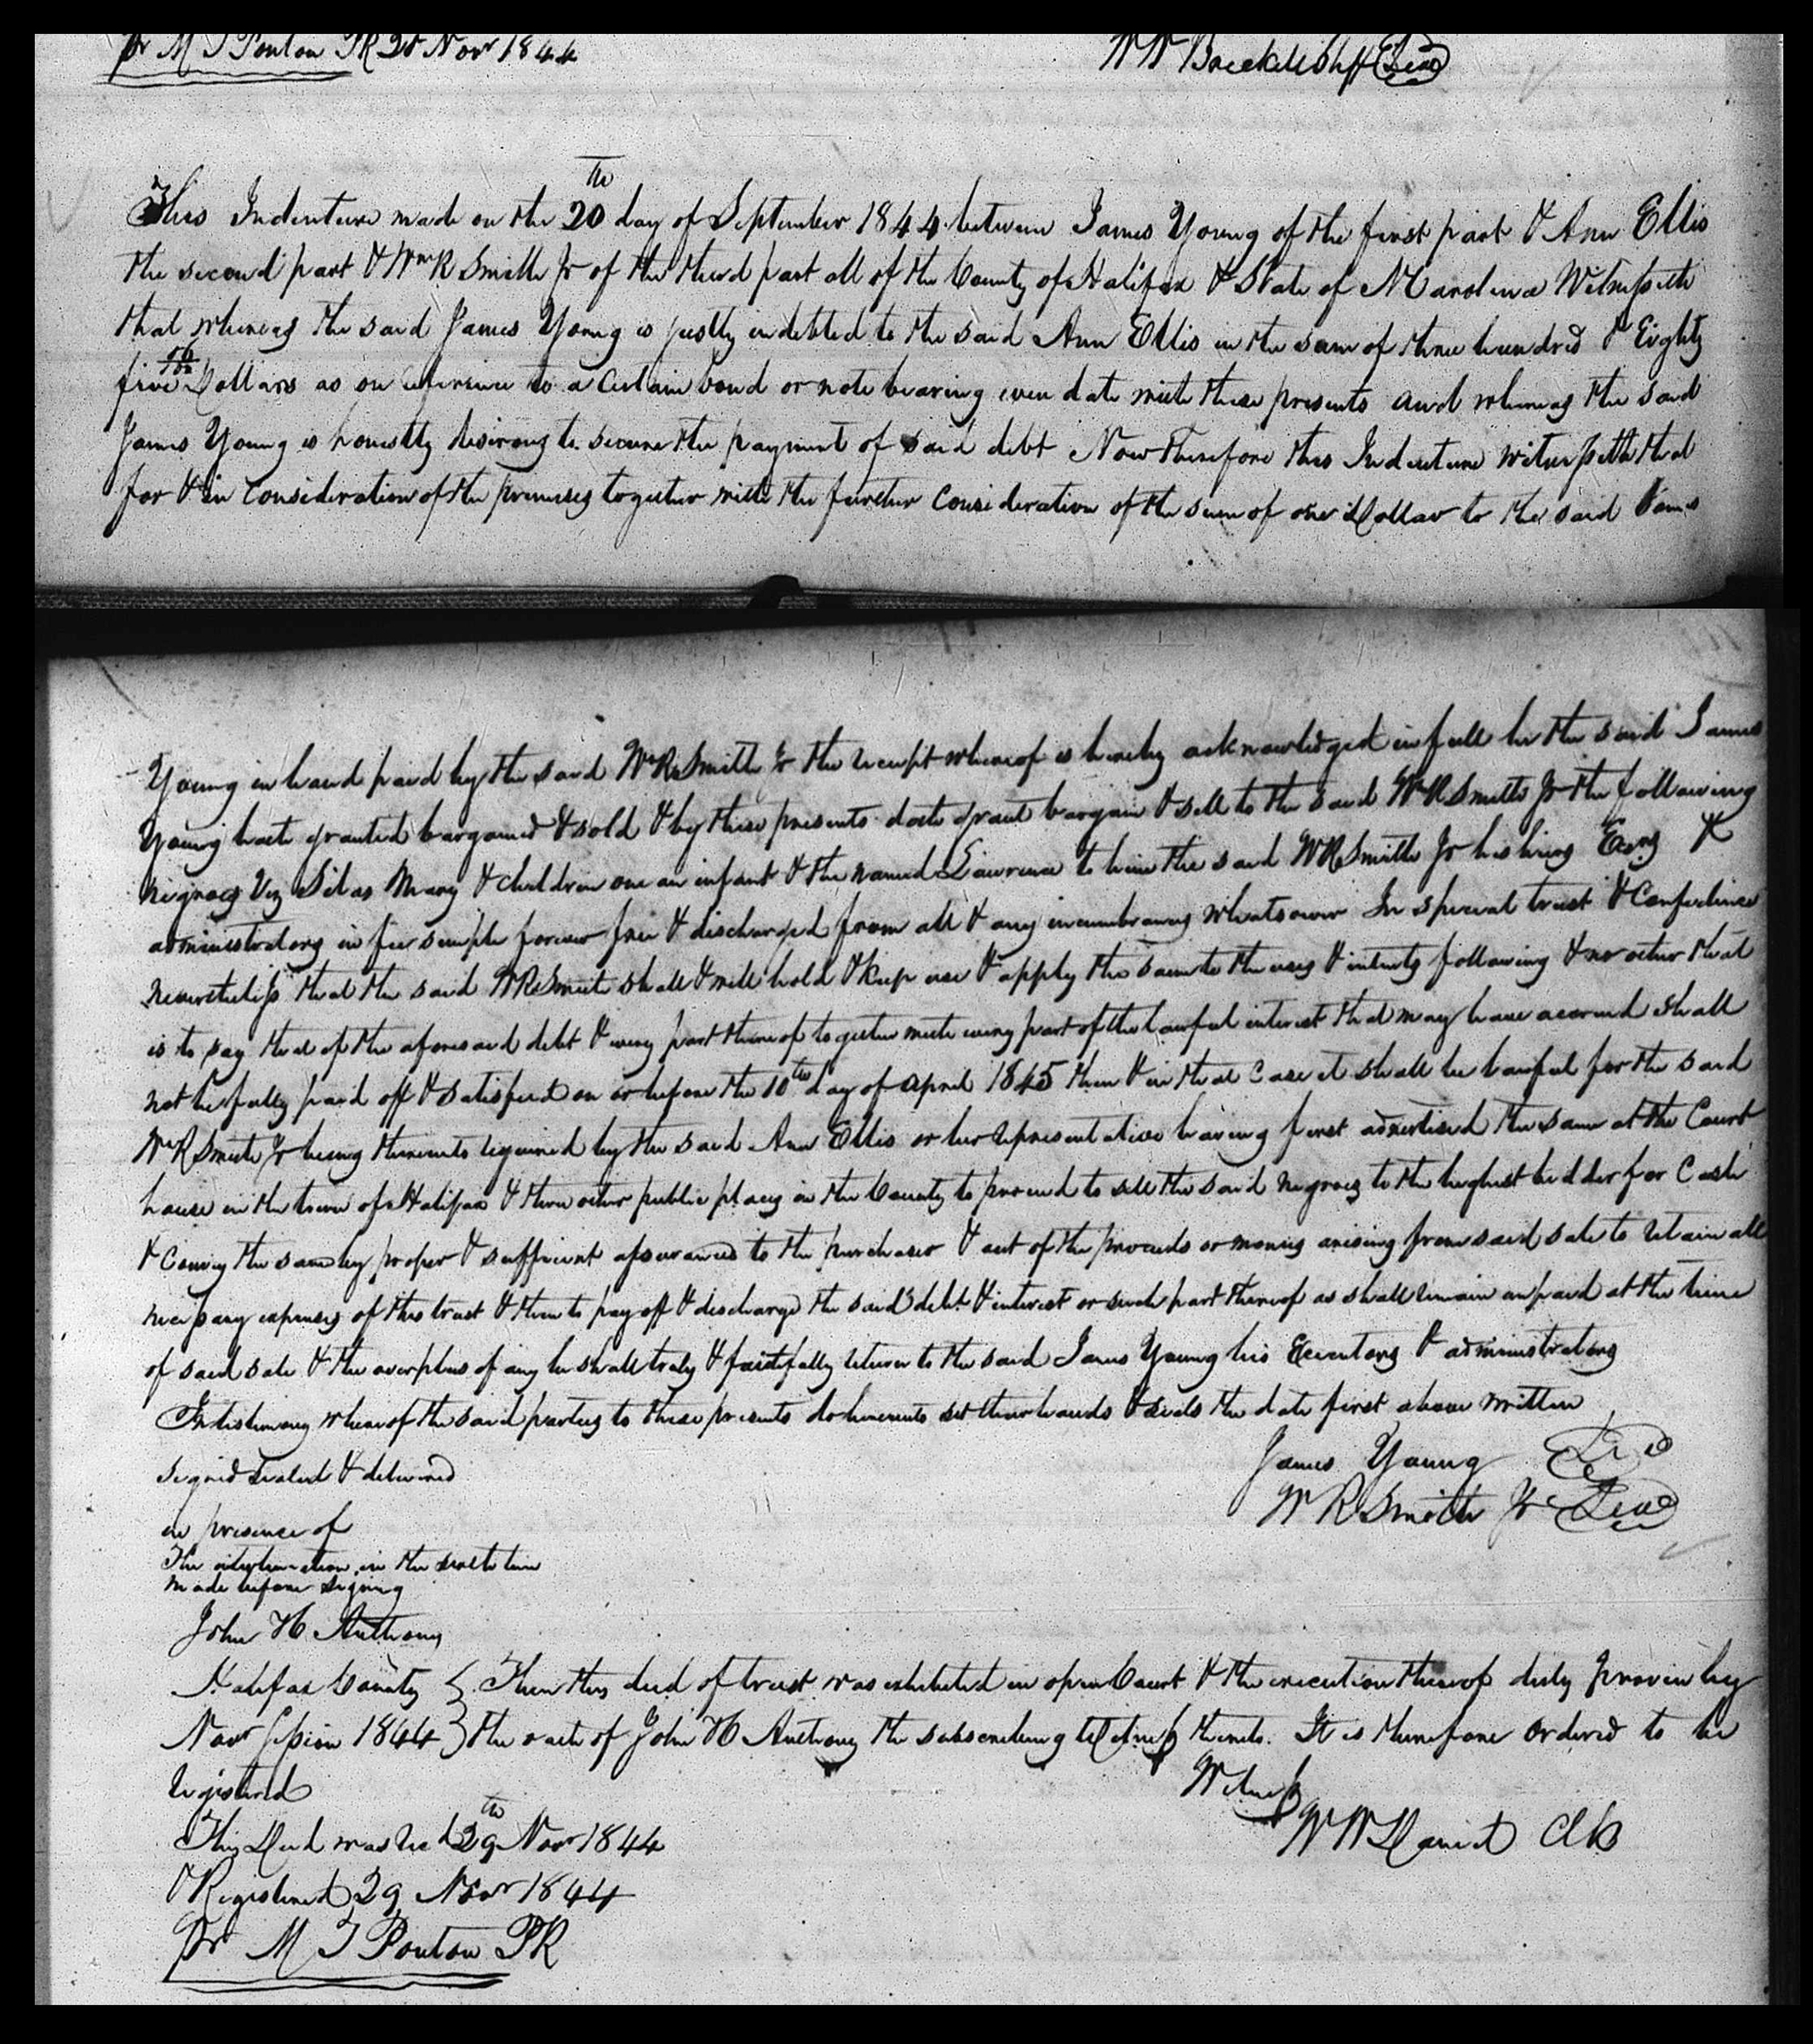 Pr M T Ponton PR 20 Novr 1844
W W
This Indenture made on the 20th day of September 1844 between James Young of the first part & Ann Ellis
the second part & Wm R Smith Jr of the third part all of the County of Halifax & State of N Carolina Witnesseth
that whereas the said James Young is justly indebted to the said Ann Ellis in the sum of three hundred & Eighty
five Dollars as on reference to a Certain bond or note bearing even date with these presents and whereas the said
James Young is honestly desirous to secure the payment of said debt Now Therefore this Indenture witnesseth that
for & in Consideration of the premises together with the further Consideration of the sum of one Dollar to the said James
Young in hand paid by the said Wm R Smith Jr the receipt whereof is hereby acknowledged in full he the said James
Young hath granted bargained & sold & by these presents doth grant bargain & sell to the said Wm R Smith Jr the following
negroes Viz Silas Mary & children one an infant & the named Lawrence to him the said W R Smith Jr his heirs Exrs &
administrators in fee simple forever free & discharged from all & any incumbrances whatsoever In special trust & Confidence
nevertheless that the said W R Smith shall & will hold & keep use & apply the same to the uses & intents following & no other that
is to say that if the aforesaid debt & every part thereof together with every part of the lawful interest that may have accrued shall
not be fully paid off & satisfied on or before the 10th day of april 1845 then & in that Case it shall be lawful for the said
Wm R Smith Jr being thereunto required by the said Ann Ellis or her representative having first advertised the same at the Court
house in the town of Halifax & three other public places in the County to proceed to sell the said negroes to the highest bidder for Cash
& Convey the same by proper & sufficient assurances to the purchaser & out of the proceeds or monies arising from said sale to retain all
necessary expenses of this trust & then to pay off & discharge the said debt & interest or such part thereof as shall remain unpaid at the time
of said sale & the overplus if any he shall truly & faithfully return to the said James Young his Executors & administrators
In testimony whereof the said parties to these presents do hereunto set their hands & seals the date first above written
James Young Seal
signed sealed & delivered
W R Smith Jr Seal
in presence of
The interlineation in the line
made before signing
John H Anthony
Halifax County } Then this deed of trust was exhibited in open Court & the execution thereof duly proven by
Novr Session 1844 } the oath of John H Anthony the subscribing Witness thereto. It is therefore Ordered to be
registered
Witness
This Deed was Recd 29th Novr 1844
W W Daniel Clk
& Registered 29 Novr 1844
Pr M T Ponton PR